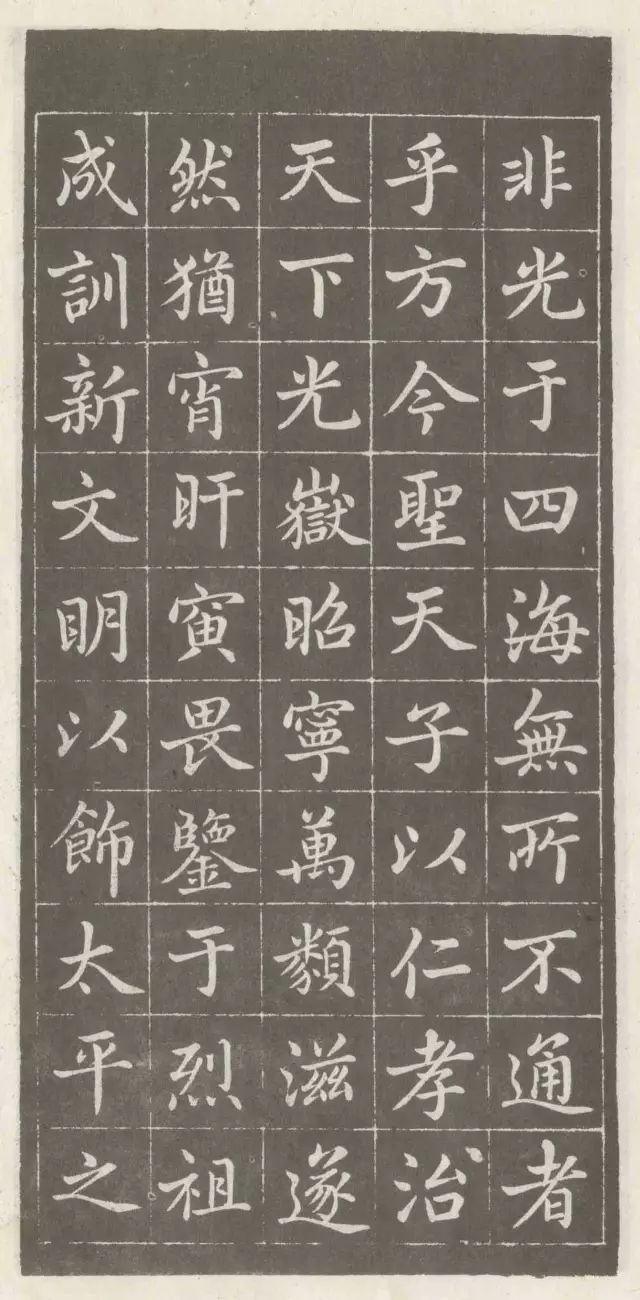 非光于四海無所不通者
乎方今聖天子以仁孝治
天下光嶽昭寧萬類滋遂
然猶宵旰寅畏鑒于烈祖
成訓新文明以飾太平之